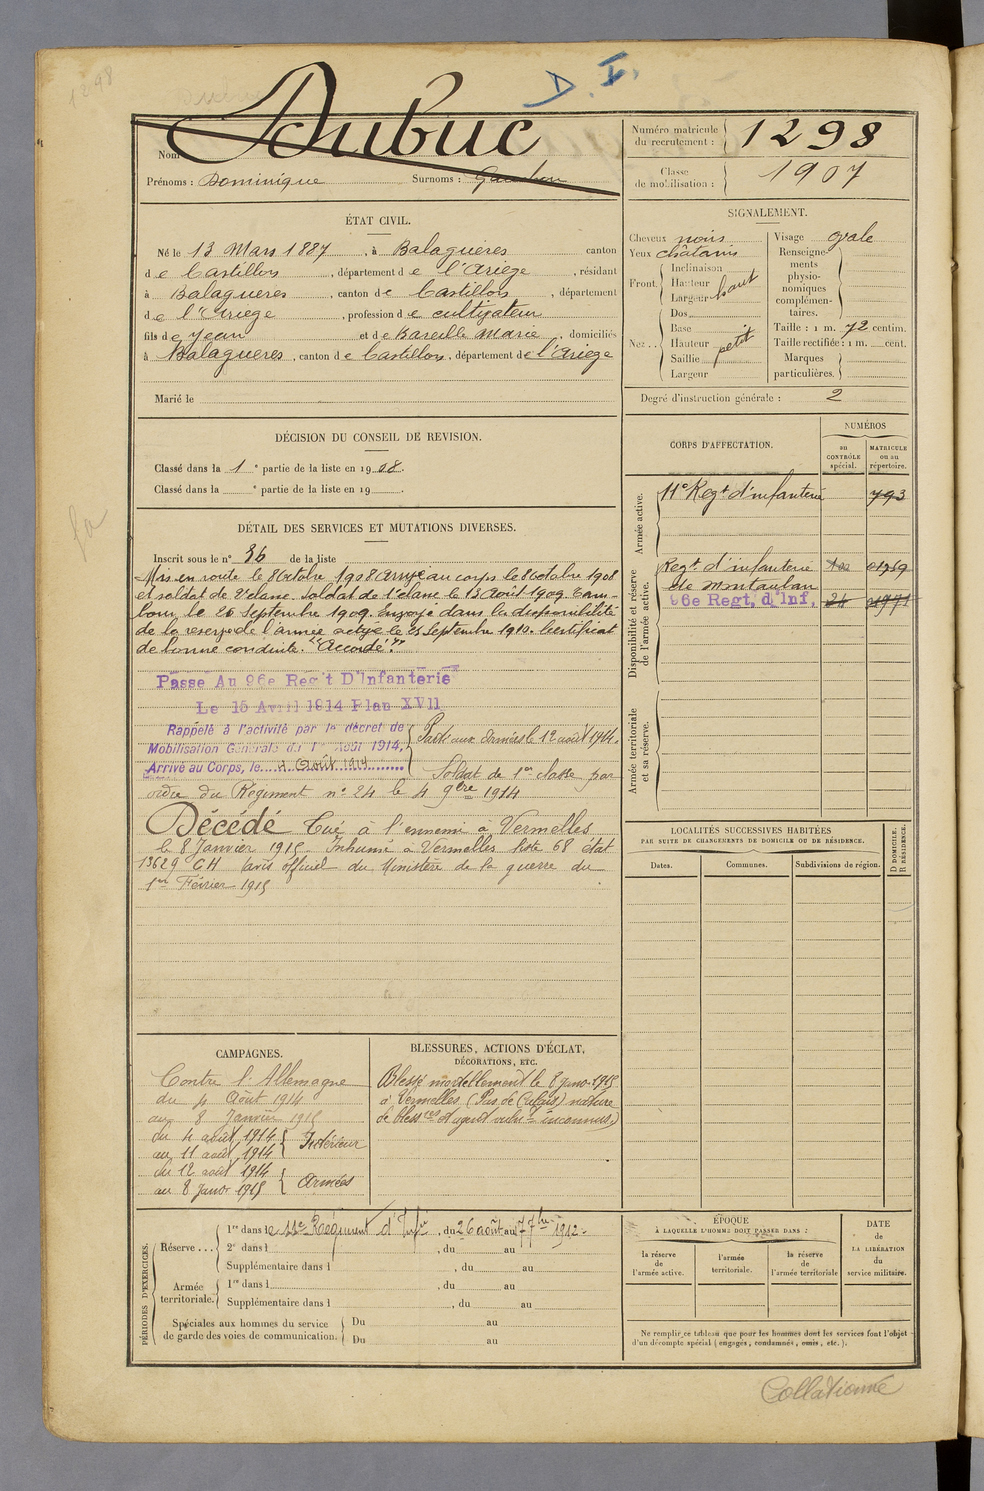 1298
D. I.
Nom Dubuc
Prénoms : Dominique Surnoms :
Numéro matricule du recrutement : 1298
Classe de mobilisation : 1907
ÉTAT CIVIL.
Né le 13 Mars 1887, à Balaguères canton
de Castillon, département de l'Ariège, résidant
à Balaguères, canton de Castillon, département
de l'Ariège, profession de cultivateur
fils de Jean et de Bareille Marie, domiciliés
à Balaguères, canton de Castillon, département de l'Ariège
Marié le
SIGNALEMENT.
Cheveux noirs
Yeux châtains
Front. Inclinaison
Hauteur
Largeur haut
Nez.. Dos
Base
Hauteur petit
Saillie
Largeur
Visage ovale
Renseigne-
ments
physio-
nomiques
complémen-
taires.
Taille : 1 m. 72 centim.
Taille rectifiée : 1 m. cent.
Marques
particulières.
Degré d'instruction générale : 2
DÉCISION DU CONSEIL DE REVISION.
Classé dans la 1e partie de la liste en 1908.
Classé dans la e partie de la liste en 19 .
DÉTAIL DES SERVICES ET MUTATIONS DIVERSES.
Inscrit sous le n° 36 de la liste
Mis en route le 8 Octobre 1908 arrivé au corps le 8 Octobre 1908
et soldat de 2e classe. Soldat de 1e classe le 13 Août 1909. Cam-
bour, le 26 Septembre 1909. Envoyé dans la disponibilité
de la reserve de l'armée active le 25 Septembre 1910. Certificat
de bonne conduite. "Accordé."
Passe Au 96e Reg't D'Infanterie
Le 15 Avril 1914 Plan XVII
Rappelé à l'activité par le décret de
Mobilisation Générale du 1er Août 1914,
Arrivé au Corps, le 4 Août 1914
Parti aux Armées le 12 août 1914.
Soldat de 1ère classe par
ordre du Régiment n° 24 le 4 9bre 1914
Décédé Tué à l'ennemi à Vermelles
le 8 Janvier 1915. Inhumé à Vermelles liste 68 état
13629 GH avis officiel du Ministère de la guerre du
1er Février 1915
CORPS D'AFFECTATION.
NUMÉROS
au CONTRÔLE spécial.
MATRICULE ou au répertoire.
Armée active.
11e Regt d'infanterie 793
Disponibilité et réserve de l'armée active.
Regt d'infanterie 01769
de Montauban
96e Regt, d'Inf, 24
Armée territoriale et sa réserve.
LOCALITÉS SUCCESSIVES HABITÉES
PAR SUITE DE CHANGEMENTS DE DOMICILE OU DE RÉSIDENCE.
Dates. Communes. Subdivisions de région. D DOMICILE. R RÉSIDENCE.
CAMPAGNES.
Contre l'Allemagne
du 4 Août 1914
au 8 Janvier 1915
du 4 août 1914
au 11 août 1914 Intérieur
du 12 août 1914
au 8 Janvr 1915 Armées
BLESSURES, ACTIONS D'ÉCLAT,
DÉCORATIONS, ETC.
Blessé mortellement le 8 janv. 1915
à Vermelles (Pas de Calais) nature
de blessres et agent vulnt inconnus)
PÉRIODES D'EXERCICES.
Réserve... 1re dans le 11e Régiment d'Infie, du 26 août au 7 7bre 1912.
2e dans l , du au
Supplémentaire dans l , du au
Armée territoriale. 1re dans l , du au
Supplémentaire dans l , du au
Spéciales aux hommes du service
de garde des voies de communication.
Du au
Du au
ÉPOQUE
À LAQUELLE L'HOMME DOIT PASSER DANS :
la réserve de l'armée active.
l'armée territoriale.
la réserve de l'armée territoriale
DATE
de
LA LIBÉRATION
du
service militaire.
Ne remplir ce tableau que pour les hommes dont les services font l'objet
d'un décompte spécial (engagés, condamnés, omis, etc.).
Collationné